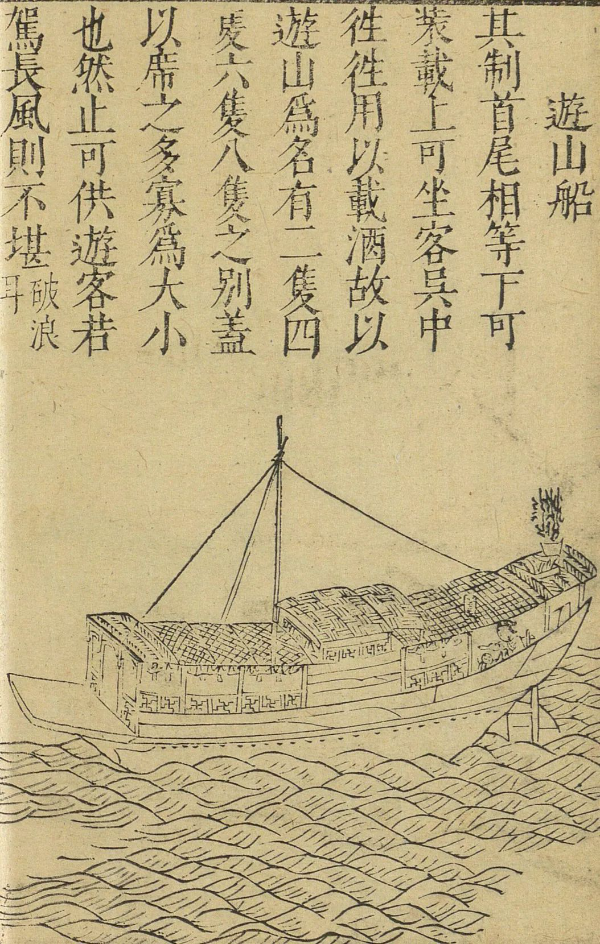 遊山船
其制首尾相等下可
装載上可坐客吳中
徃徃用以載酒故以
遊山爲名有二隻四
隻六隻八隻之別蓋
以席之多寡爲大小
也然止可供遊客若
駕長風則不堪破浪
耳